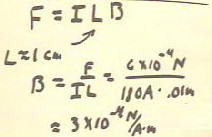 F = I L B
L ≈ 1 cm
B = F/IL = 6 x 10⁻⁴ N / 180A · .01m
≈ 3 x 10⁻⁴ N/A·m